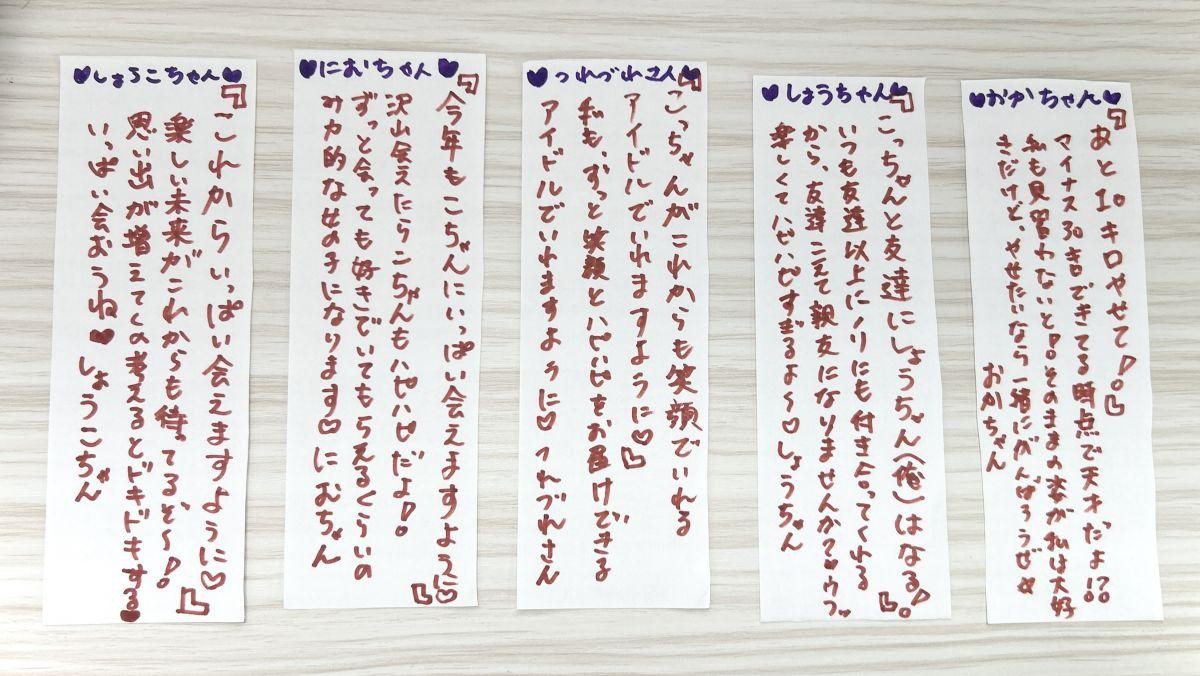 ♥しょうこちゃん♥
「これからいっぱい会えますように♡」
楽しい未来がこれからも待ってるぞ〜!
思い出が増えてくの考えるとドキドキする♥
いっぱい会おうね♥ しょうこちゃん
♥におちゃん♥
「今年もこちゃんにいっぱい会えますように♡」
沢山会えたらこちゃんもハピハピだよ!
ずっと会っても好きでいてもらえるくらいの
みカ的な女の子になります♡ におちゃん
♥つれづれさん♥
「こっちゃんがこれからも笑顔でいれる
アイドルでいれますように♡」
私も、ずっと笑顔とハピハピをお届けできる
アイドルでいれますように♡ つれづれさん
♥しょうちゃん♥
「こっちゃんと友達にしょうちゃん(俺)はなる!」
いつも友達以上にノリにも付き合ってくれる
から、友達こえて親友になりませんか?♥ウフ
楽しくてハピハピすぎるよ〜♡ しょうちゃん
♥おかちゃん♥
「あと10キロやせて!」
マイナス30キロできてる時点で天才だよ!?
私も見習わないと!そのままの姿が私は大好
きだけど、やせたいなら一緒にがんばろうぜ☆
おかちゃん